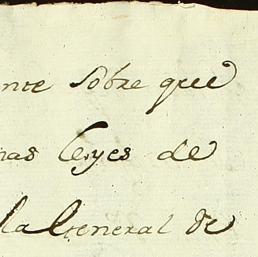 nte sobre que
nas leyes de
la General de